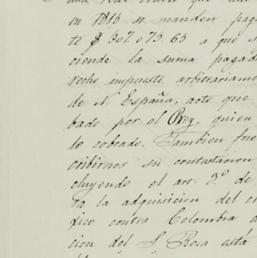 una real orden que
en 1813 se manden paga
te $ 307.073.63 a que a
ciende la suma pagad
roche impuesto arbitrariame
de N. España, acto que
bado por el Rey, quien
lo cobrado. Tambien fue
cribirnos su contestacion
cluyendo el art. 3º de
ra la adquisicion del
fico contra Colombia
cion del S. Rosa está